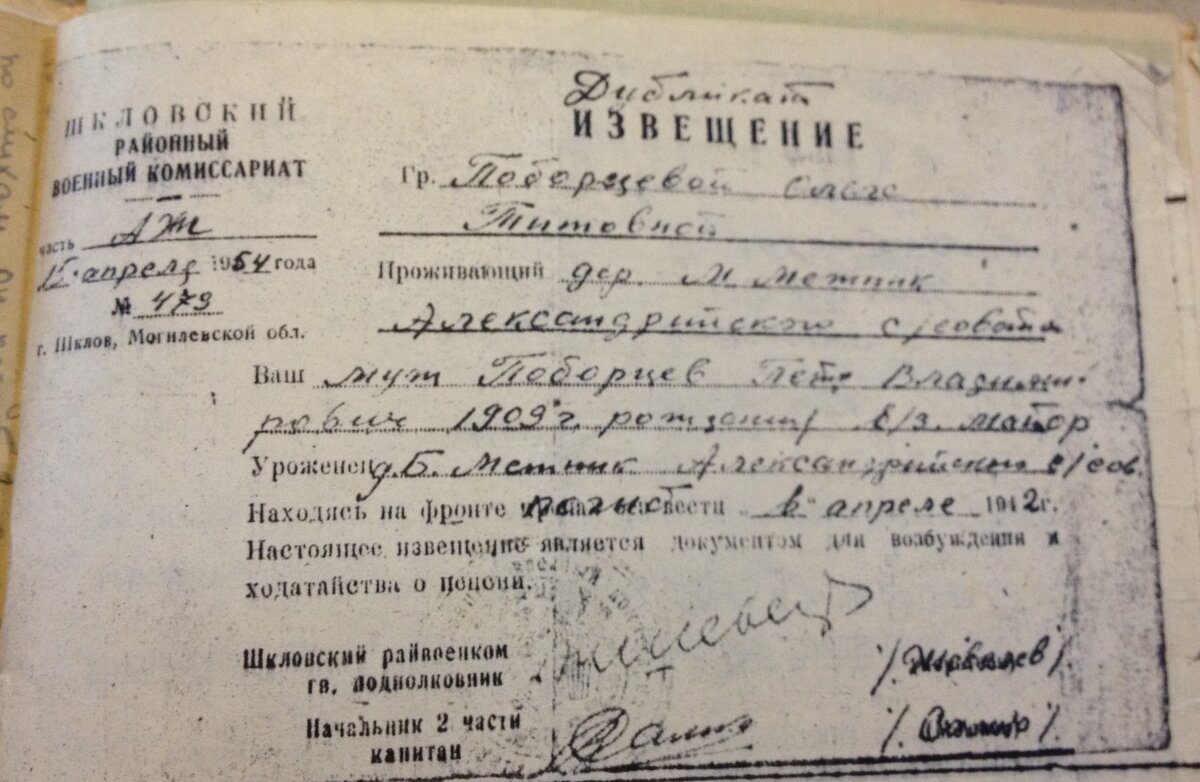 Дубликат
ИЗВЕЩЕНИЕ
ШКЛОВСКИЙ
РАЙОННЫЙ
ВОЕННЫЙ КОМИССАРИАТ
часть
15 апреля 1954 года
№ 473
г. Шклов, Могилевской обл.
Гр. Поборцевой Ольге
Титовной
Проживающий дер. М. Метник
Александрийского с/совета
Ваш муж Поборцев Петр Владими-
рович 1909 г. рождения майор
Уроженец д. Б. Метник Александрийский с/сов.
Находясь на фронте погиб в апреле 1942 г.
Настоящее извещение является документом для возбуждения
ходатайства о пенсии.
Шкловский райвоенком
гв. подполковник
Начальник 2 части
капитан